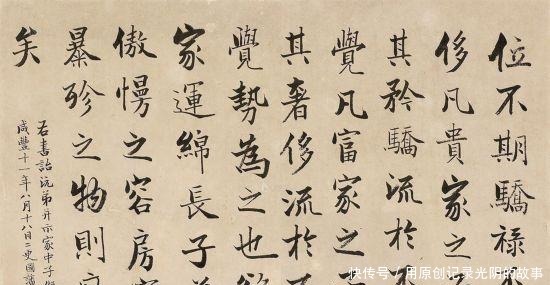 位不期驕禄不
侈凡貴家之
其矜驕流於
覺凡富家之
其奢侈流於
覺勢為之也欲
家運綿長子弟
傲慢之容房
暴殄之物則
矣
右書詒沅弟并示家中子
咸豐十一年八月十八日二更國藩
快传号 / 用原创记录光阴的故事